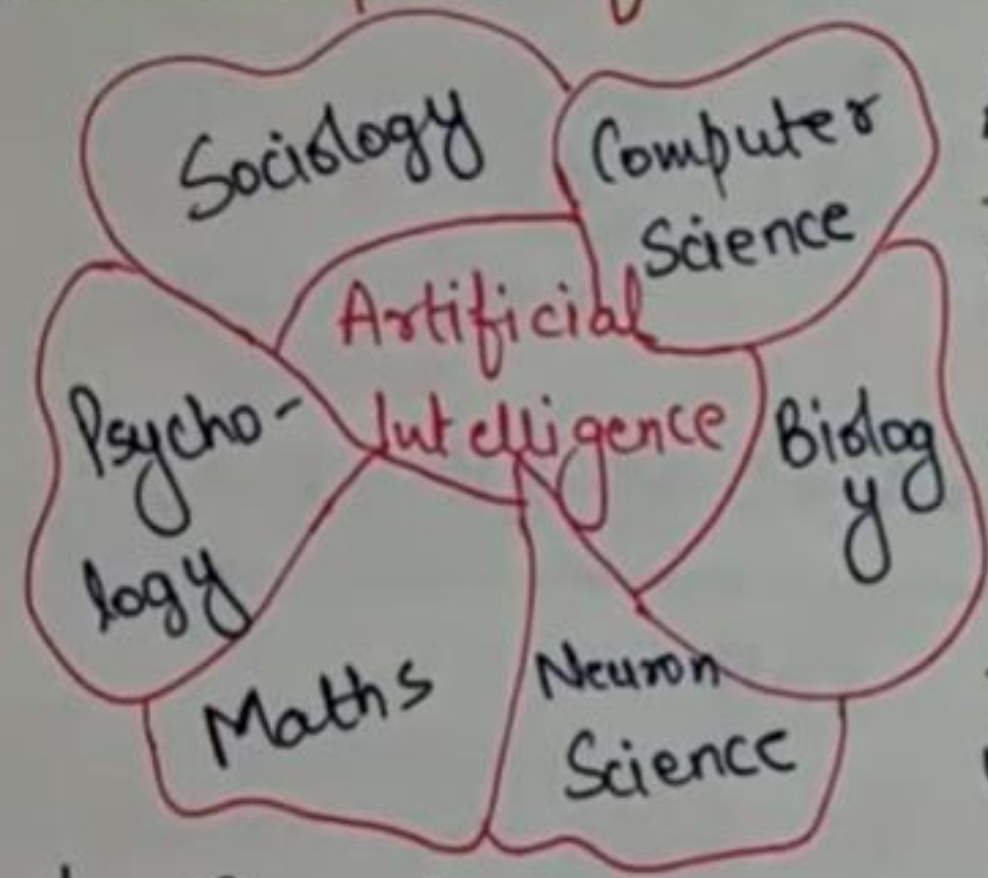 Sociology
Computer
Science
Artificial
Intelligence
Psycho-
logy
Biolog
y
Maths
Neuron
Science